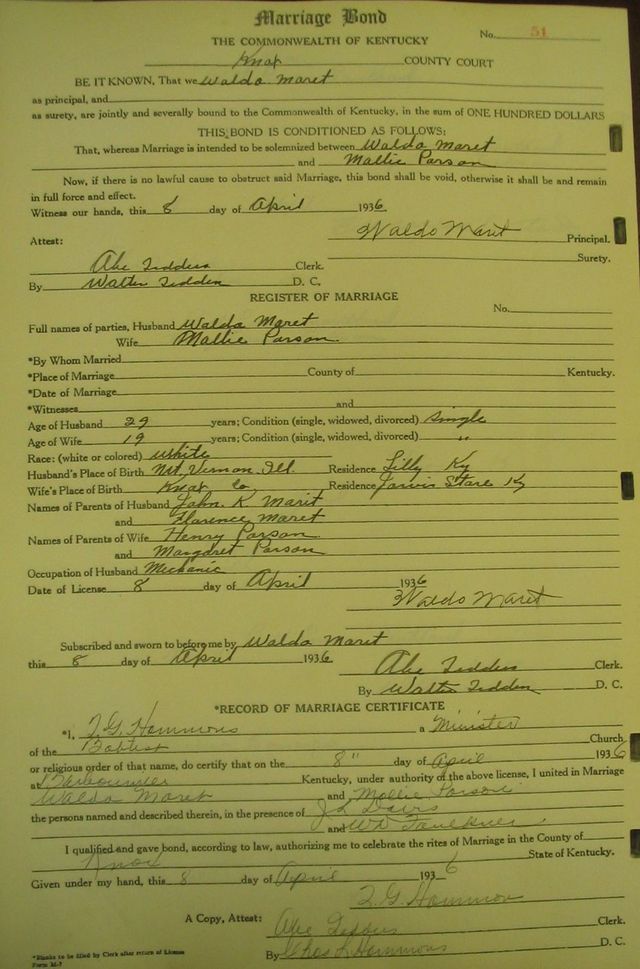 Marriage Bond
No. 51
THE COMMONWEALTH OF KENTUCKY
Knox COUNTY COURT
BE IT KNOWN, That we Waldo Maret
as principal, and
as surety, are jointly and severally bound to the Commonwealth of Kentucky, in the sum of ONE HUNDRED DOLLARS
THIS BOND IS CONDITIONED AS FOLLOWS:
That, whereas Marriage is intended to be solemnized between Waldo Maret
and Mallie Parson
Now, if there is no lawful cause to obstruct said Marriage, this bond shall be void, otherwise it shall be and remain
in full force and effect.
Witness our hands, this 8 day of April 1936
Waldo Maret Principal.
Attest:
Surety.
Abe Tedders Clerk.
By Walter Tedders D. C.
REGISTER OF MARRIAGE
No.
Full names of parties, Husband Waldo Maret
Wife Mallie Parson
*By Whom Married
*Place of Marriage County of Kentucky.
*Date of Marriage
*Witnesses and
Age of Husband 29 years; Condition (single, widowed, divorced) single
Age of Wife 19 years; Condition (single, widowed, divorced) "
Race: (white or colored) white
Husband's Place of Birth Mt. Vernon Ill. Residence Lilly Ky
Wife's Place of Birth Knox Co Residence Jarvis Store Ky
Names of Parents of Husband John K. Marit
and Florence Maret
Names of Parents of Wife Henry Parson
and Margaret Parson
Occupation of Husband Mechanic
Date of License 8 day of April 1936
Waldo Maret
Subscribed and sworn to before me by Waldo Maret
this 8 day of April 1936
Abe Tedders Clerk.
By Walter Tedders D. C.
*RECORD OF MARRIAGE CERTIFICATE
*I, T. G. Hammons a Minister
of the Babtest Church
or religious order of that name, do certify that on the 8" day of April 1936
at Barbourville Kentucky, under authority of the above license, I united in Marriage
Waldo Maret and Mollie Parson
the persons named and described therein, in the presence of J L Davis
and WD Faulkner
I qualified and gave bond, according to law, authorizing me to celebrate the rites of Marriage in the County of
Knox State of Kentucky.
Given under my hand, this 8 day of April 1936
T. G. Hammon
A Copy, Attest: Abe Tedders Clerk.
By Chas L Hammons D. C.
*Blanks to be filled by Clerk after return of License
Form M-7